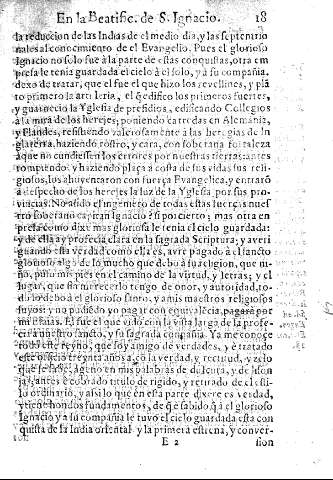 En la Beatific. de S. Ignacio. 18
la reduccion de las Indias de el medio dia, y las septentrio
nales al conocimiento de el Evangelio. Pues el glorioso
Ignacio no solo fue à la parte de estas conquistas, otra em
presa le tenia guardada el cielo à el solo, y à su compañia.
dexo de tratar, que el fue el que hizo los revellines, y plã
to primero la artilleria, el q̃ edifico los primeros fuertes,
y guarnecio la Yglesia de presidios, edificando Collegios
à la mira de los herejes; poniendo catredas en Alemania,
y Flandes, resistiendo valerosamente à las heregias de In
glaterra, haziendo rostro, y cara, con soberana fortaleza
à que no cundiessen los errores por nuestras tierras: antes
rompiendo, y haziendo plaça a costa de sus vidas sus reli
giosos, los ahuyentaron con fuerça Evangelica, y entrarõ
à despecho de los herejes la luz de la Yglesia por sus pro-
vincias. No ha sido el ingeniero de todas estas fuerças nues
tro soberano capitan Ignacio? si por cierto; mas otra em
presa como dixe mas gloriosa le tenia el cielo guardada:
y de ella ay profecia clara en la sagrada Scriptura; y averi
guando esta verdad como ella es, avre pagado à el sancto
glorioso algo de lo mucho que debo à su religion, que ni-
ño, puso mis pies en el camino de la virtud, y letras; y el
lugar, que sin merecerlo tengo de onor, y autoridad, to-
do lo debo à el glorioso santo, y à mis maestros religiosos
suyos: y no pudiendo yo pagar con equivalẽcia, pagarà por
mi Isaias. El fue el que vido con la vista larga de la profe-
cia à nuestro sancto, y su sagrada compañia. Ya me conoce
todo este reyno, que soy amigo de verdades, y è tratado
este officio treynta años à, cõ la verdad, y rectitud, y zelo
que se sabe, ageno en mis palabras de dulçura, y de lison
ja; antes è cobrado titulo de rigido, y retirado de el esti-
lo ordinario, y assi lo que en esta parte dixere es verdad,
y tiene hondos fundamentos, de q̃ è sabido q̃ à el glorioso
Ignacio y à su compañia le tuvo el cielo guardada esta con
quista de la India oriental y la primera estrena, y conver-
E 2 sion